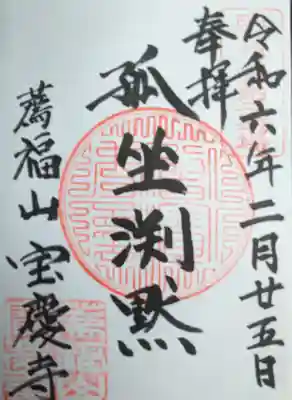 令和六年二月廿五日
奉拝
孤坐渕黙
薦福山宝慶寺